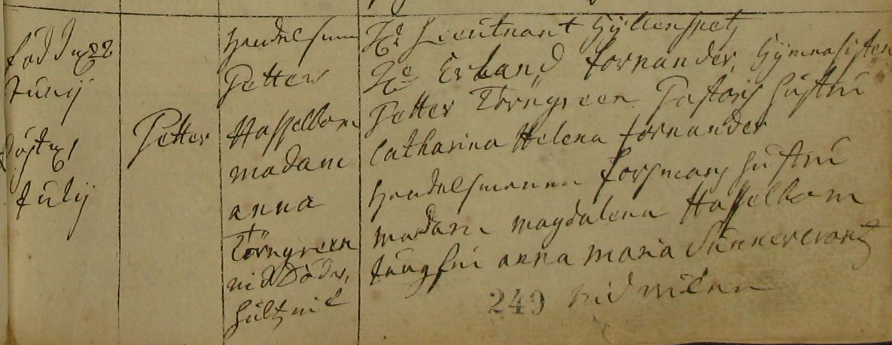 född den 28
Junij
döptes
Julij
Petter
Handelsman
Petter
Hasselbom
madam
anna
Törngreen
vid Döder,
hultzvik
Hr Lieutnant Gyllenspetz
Hr Erland Fornander, Gymnasisten
Petter Törngreen. Pastoris hustru
Catharina Helena Fornander
Handelsmannen Forsmans hustru
madam magdalena Hasselbom
Jungfru anna maria
249